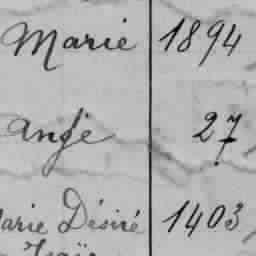 Marie 1894
Ange 27
Marie Désiré 1403